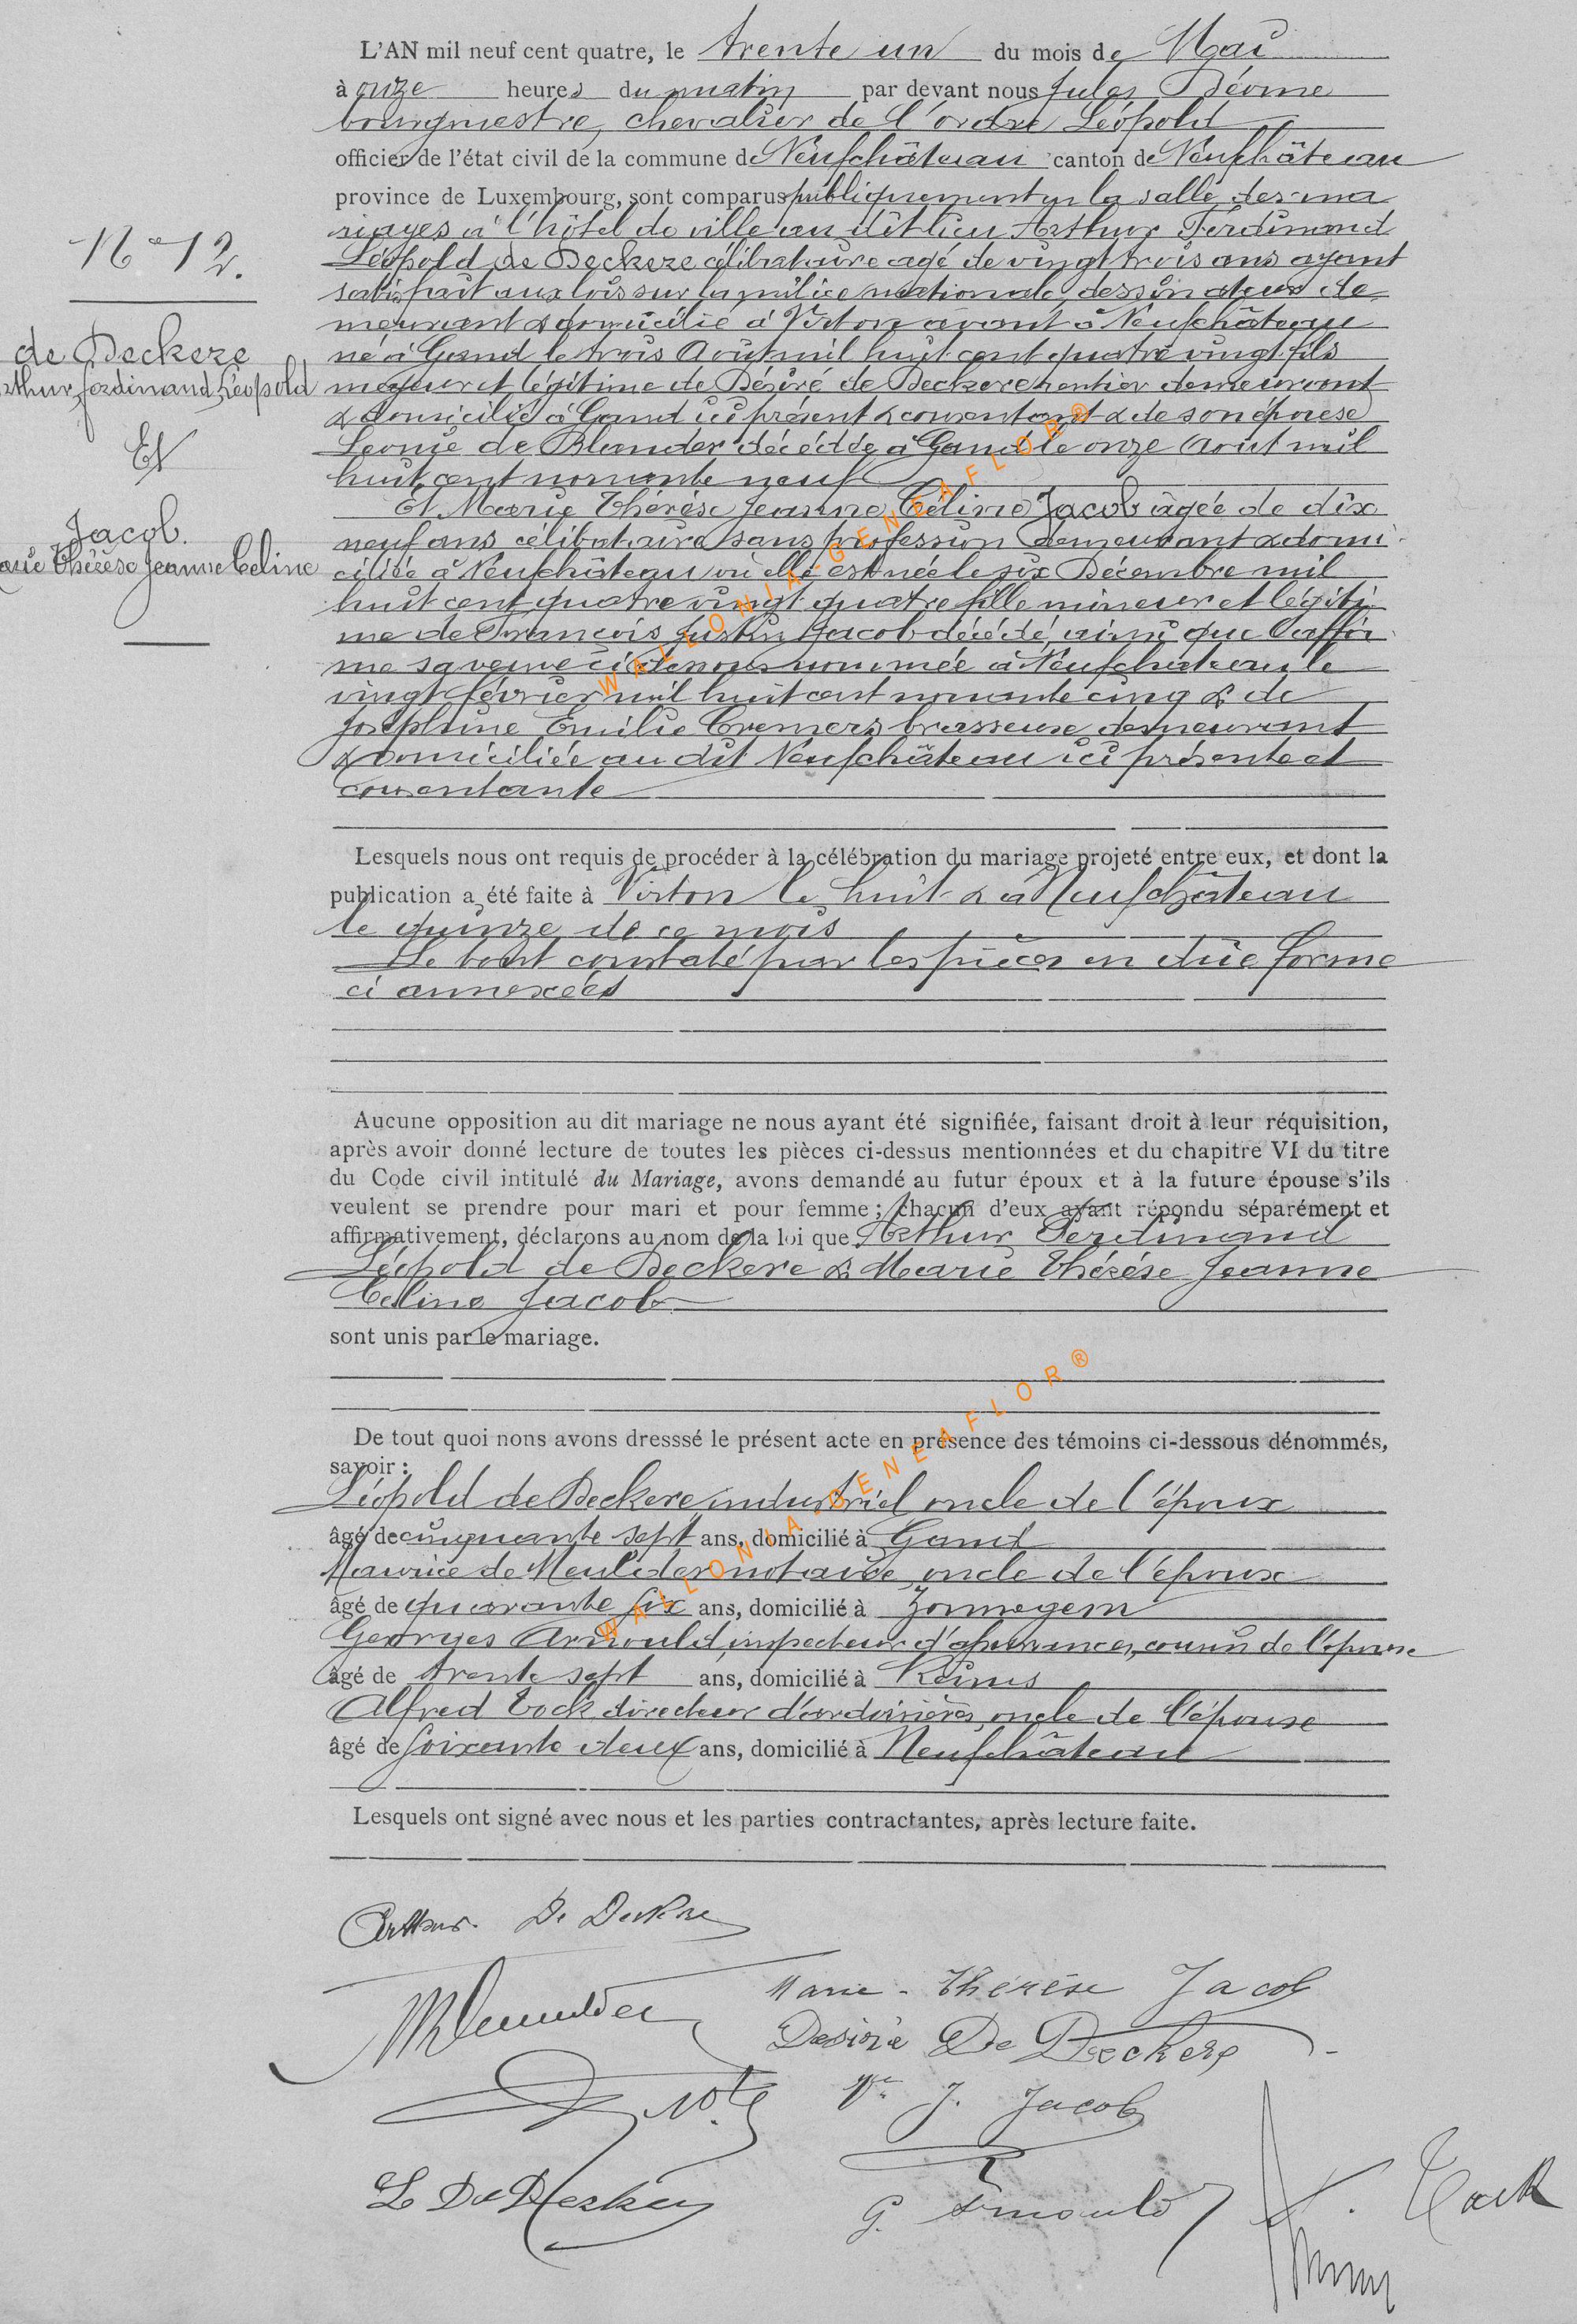 L'AN mil neuf cent quatre, le trente un du mois de Mai
à onze heures du matin par devant nous Jules Déome
bourgmestre, chevalier de l'ordre Léopold
officier de l'état civil de la commune de Neufchâteau canton de Neufchâteau
province de Luxembourg, sont comparus publiquement en la salle des ma
riages à l'hôtel de ville au dit lieu Arthur Ferdinand
N° 12.
Léopold de Deckere célibataire agé de vingt trois ans ayant
satisfait aux lois sur la milice nationale, dessinateur de
meurant & domicilié à Virton avant à Neufchâteau
de Deckere
né à Gand le trois Août mil huit cent quatre vingt fils
Arthur, Ferdinand, Léopold
majeur et légitime de Désiré de Deckere rentier demeurant
& domicilié à Gand ici présent & consentant & de son épouse
Et
Léonie de Blander décédée à Gand le onze Août mil
huit cent nonante neuf
Et Marie Thérèse Jeanne Céline Jacob âgée de dix
Jacob.
neuf ans célibataire sans profession demeurant & domi
Marie Thérèse Jeanne Celine
ciliée à Neufchâteau où elle est née le six Décembre mil
huit cent quatre vingt quatre fille mineur et légiti
me de François Justin Jacob décédé, ainsi que l'affir
me sa veuve ci dessous nommée à Neufchâteau le
vingt février mil huit cent nonante cinq & de
Joséphine Emilie Cremers brasseuse demeurant
& domiciliée au dit Neufchâteau ici présente et
consentante
Lesquels nous ont requis de procéder à la célébration du mariage projeté entre eux, et dont la
publication a été faite à Virton le huit & à Neufchâteau
le quinze de ce mois
Le tout constaté par les pièces en dûe forme
ci annexées
Aucune opposition au dit mariage ne nous ayant été signifiée, faisant droit à leur réquisition,
après avoir donné lecture de toutes les pièces ci-dessus mentionnées et du chapitre VI du titre
du Code civil intitulé du Mariage, avons demandé au futur époux et à la future épouse s'ils
veulent se prendre pour mari et pour femme ; chacun d'eux ayant répondu séparément et
affirmativement, déclarons au nom de la loi que Arthur Ferdinand
Léopold de Deckere & Marie Thérèse Jeanne
Celine Jacob
sont unis par le mariage.
De tout quoi nons avons dresssé le présent acte en présence des témoins ci-dessous dénommés,
savoir :
Léopold de Deckere, industriel oncle de l'époux
âgé de cinquante sept ans, domicilié à Gand
Maurice de Meulder notaire, oncle de l'époux
âgé de quarante six ans, domicilié à Zonnegem
Georges Arnould, inspecteur d'assurances, cousin de l'épouse
âgé de trente sept ans, domicilié à Reims
Alfred Tock directeur d'ardoisières, oncle de l'épouse
âgé de soixante deux ans, domicilié à Neufchâteau
Lesquels ont signé avec nous et les parties contractantes, après lecture faite.
Arthur De Deckere
Marie-Thérèse Jacob
Désiré De Deckere
Ve J. Jacob
L De Deckere
G. Arnould
A. Tock
WALLONIA-GENEAFLOR®
WALLONIA-GENEAFLOR®